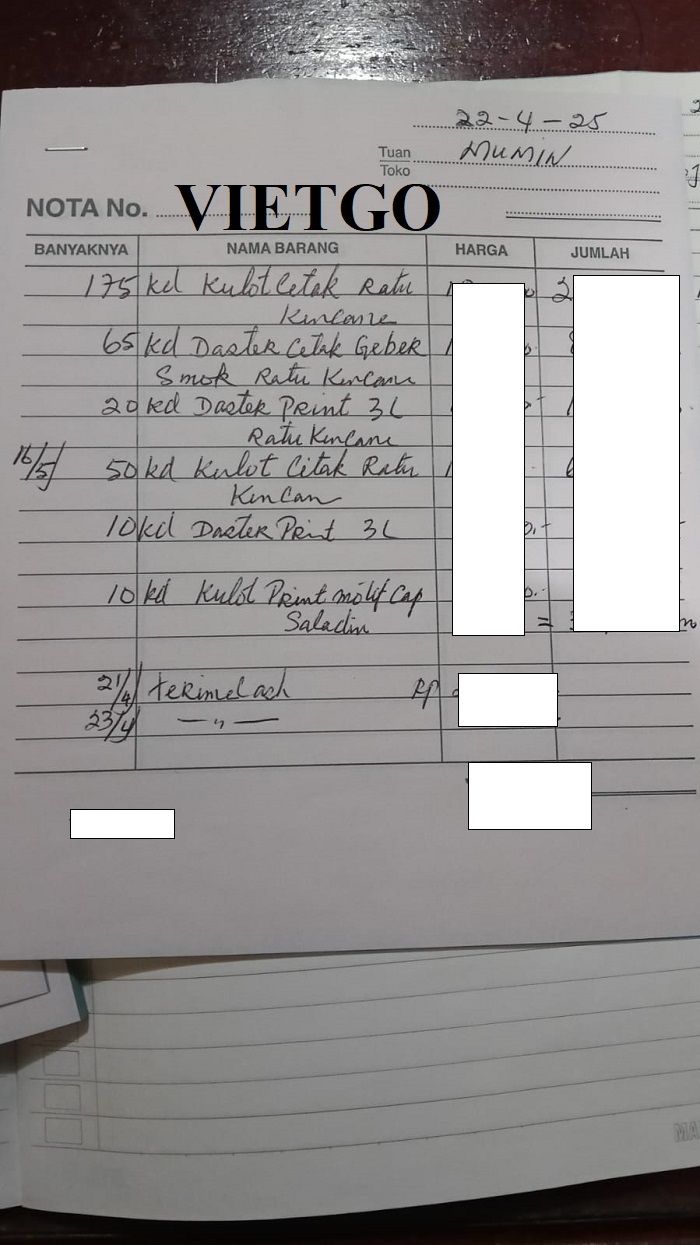 22-4-25
Tuan MUMIN
Toko
NOTA No. VIETGO
BANYAKNYA NAMA BARANG HARGA JUMLAH
175 kd Kulot Cetak Ratu
Kencane
65 kd Daster Cetak Geber
Smok Ratu Kencane
20 kd Daster Print 3L
Ratu Kencane
16/5 50 kd Kulot Citak Ratu
Kencan
10 kd Daster Print 3L
10 kd Kulot Print motif Cap
Saladin =
21/4 terima Cash Rp
23/4 — " —